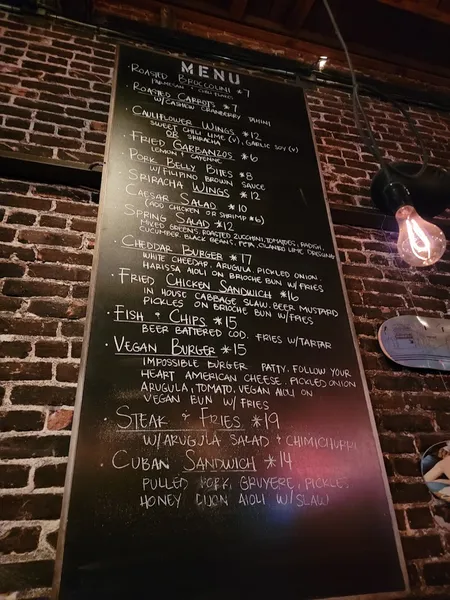 MENU
· ROASTED BROCCOLINI *7
PARMESAN + CHILI FLAKES
· ROASTED CARROTS *7
W/CASHEW CRANBERRY TAHINI
· CAULIFLOWER WINGS *12
SWEET CHILI LIME (V), GARLIC SOY (V)
OR SRIRACHA
· FRIED GARBANZOS *6
LEMON + CAYENNE
· PORK BELLY BITES *8
W/FILIPINO BROWN SAUCE
· SRIRACHA WINGS *12
· CAESAR SALAD *10
(ADD CHICKEN OR SHRIMP *6)
· SPRING SALAD *12
MIXED GREENS, ROASTED ZUCCHINI, TOMATOES, RADISH,
CUCUMBER, BLACK BEANS, FETA, CILANTRO LIME DRESSING
· CHEDDAR BURGER *17
WHITE CHEDDAR, ARUGULA, PICKLED ONION
HARISSA AIOLI ON BRIOCHE BUN W/FRIES
· FRIED CHICKEN SANDWICH *16
IN HOUSE CABBAGE SLAW, BEER MUSTARD
PICKLES ON BRIOCHE BUN W/FRIES
· FISH + CHIPS *15
BEER BATTERED COD, FRIES W/TARTAR
· VEGAN BURGER *15
IMPOSSIBLE BURGER PATTY, FOLLOW YOUR
HEART AMERICAN CHEESE, PICKLED ONION
ARUGULA, TOMATO, VEGAN AIOLI ON
VEGAN BUN W/FRIES
· STEAK + FRIES *19
W/ARUGULA SALAD + CHIMICHURRI
· CUBAN SANDWICH *14
PULLED PORK, GRUYERE, PICKLES
HONEY DIJON AIOLI W/SLAW